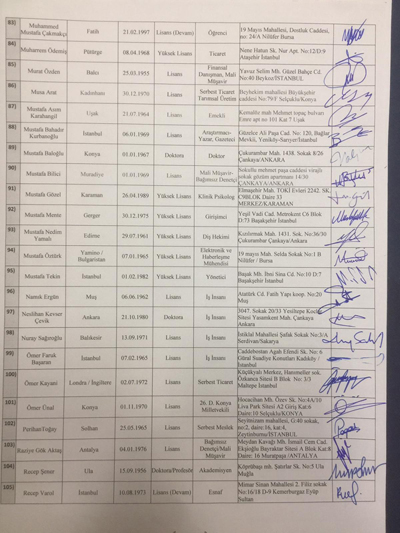 83) Muhammed Mustafa Çakmakçı Fatih 21.02.1997 Lisans (Devam) Öğrenci 19 Mayıs Mahallesi, Dostluk Caddesi, no: 24/A Nilüfer Bursa
84) Muharrem Ödemiş Pütürge 08.04.1968 Yüksek Lisans Ticaret Nene Hatun Sk. Nur Apt. No:12/D:9 Ataşehir İstanbul
85) Murat Özden Balcı 25.03.1955 Lisans Finansal Danışman, Mali Müşavir Yavuz Selim Mh. Güzel Bahçe Cd. No:40 Beykoz/İSTANBUL
86) Musa Arat Kadınhanı 30.12.1970 Lisans Serbest Ticaret Tarımsal Üretim Beyhekim mahallesi Büyükşehir caddesi No:79/F Selçuklu/Konya
87) Mustafa Asım Karahangil Uşak 21.07.1964 Lisans Emekli Kemalöz mah Mehmet topaç bulvarı Emre apt no 101 Kat 7 Uşak
88) Mustafa Bahadır Kurbanoğlu İstanbul 06.01.1969 Lisans Araştırmacı-Yazar, Gazeteci Güzelce Ali Paşa Cad. No: 120, Bağlar Mevkii, Yeniköy-Sarıyer/İstanbul
89) Mustafa Baloğlu Konya 01.01.1967 Doktora Doktor Çukurambar Mah. 1434. Sokak 8/26 Çankaya/ANKARA
90) Mustafa Bilici Muradiye 01.01.1960 Lisans Mali Müşavir-Bağımsız Denetçi Sokullu mehmet paşa caddesi vişneli sokak gözlem apartmanı 14/30 ÇANKAYA/ANKARA
91) Mustafa Gözel Karaman 26.04.1989 Yüksek Lisans Klinik Psikolog Elmaşehir Mah. TOKİ Evleri 2242. SK. CNBLOK Daire 33 MERKEZ/KARAMAN
92) Mustafa Mente Gerger 30.12.1975 Yüksek Lisans Girişimci Yeşil Vadi Cad. Metrokent C6 Blok D/73 Başakşehir İstanbul
93) Mustafa Nedim Yamalı Edirne 29.07.1961 Lisans Diş Hekimi Kızılırmak Mah. 1431. Sok. No:36/30 Çukurambar Çankaya/Ankara
94) Mustafa Öztürk Yamino / Bulgaristan 07.01.1965 Lisans Elektronik ve Haberleşme Mühendisi 19 mayıs Mah. Selda Sokak No:1 B Nilüfer / Bursa
95) Mustafa Tekin İstanbul 01.02.1982 Yüksek Lisans Yönetici Başak Mh. İbni Sina Cd. No:10 D:7 Başakşehir İstanbul
96) Namık Ergün Muş 06.06.1962 Lisans İş İnsanı Atatürk Cd. Fatih Yapı koop. No:20 Muş
97) Neslihan Kevser Çevik Ankara 21.10.1980 Doktora İş İnsanı 3047. Sokak 20/33 Yeşiltepe Koçtaş Sitesi Yaşamkent Mah. Çankaya Ankara
98) Nuray Sağıroğlu Balıkesir 13.09.1971 Lisans İş İnsanı İstiklal Mahallesi Şafak Sokak No:3/A Serdivan/Sakarya
99) Ömer Faruk Başaran İstanbul 07.02.1965 Lisans İş İnsanı Caddebostan Agah Efendi Sk. No: 6 Güral Suadiye Konutları Kadıköy / İstanbul
100) Ömer Kayani Londra / İngiltere 02.07.1972 Lisans Serbest Ticaret Küçükyalı Merkez, Hanımeller sok. Özkanca Sitesi B Blok No: 3/3 Maltepe İstanbul
101) Ömer Ünal Konya 01.11.1970 Lisans 26. D. Konya Milletvekili Hocacihan Mh. Özerv Sk. No:4A/10 Liva Park Sitesi A2 Giriş Kat:6 Daire:10 Selçuklu/KONYA
102) Selhan 25.03.1965 Lisans Serbest Meslek
103) Raziye Gök Aktaş Antalya 04.01.1976 Lisans Bağımsız Denetçi/Mali Müşavir Meydan Kavağı Mh. İsmail Cem Cad. Ekşioğlu Bayraktar Sitesi A Blok Kat:8 Daire: 16 Muratpaşa /ANTALYA
104) Recep Şener Ula 15.09.1956 Doktora/Profesör Akademisyen Köprübaşı mh. Şairler Sk. No:5 Ula Muğla
105) Recep Varol İstanbul 10.08.1973 Lisans (Devam) Esnaf Mimar Sinan Mahallesi 2. Filiz sokak No:16/18 D:9 Kemerburgaz Eyüp Sultan